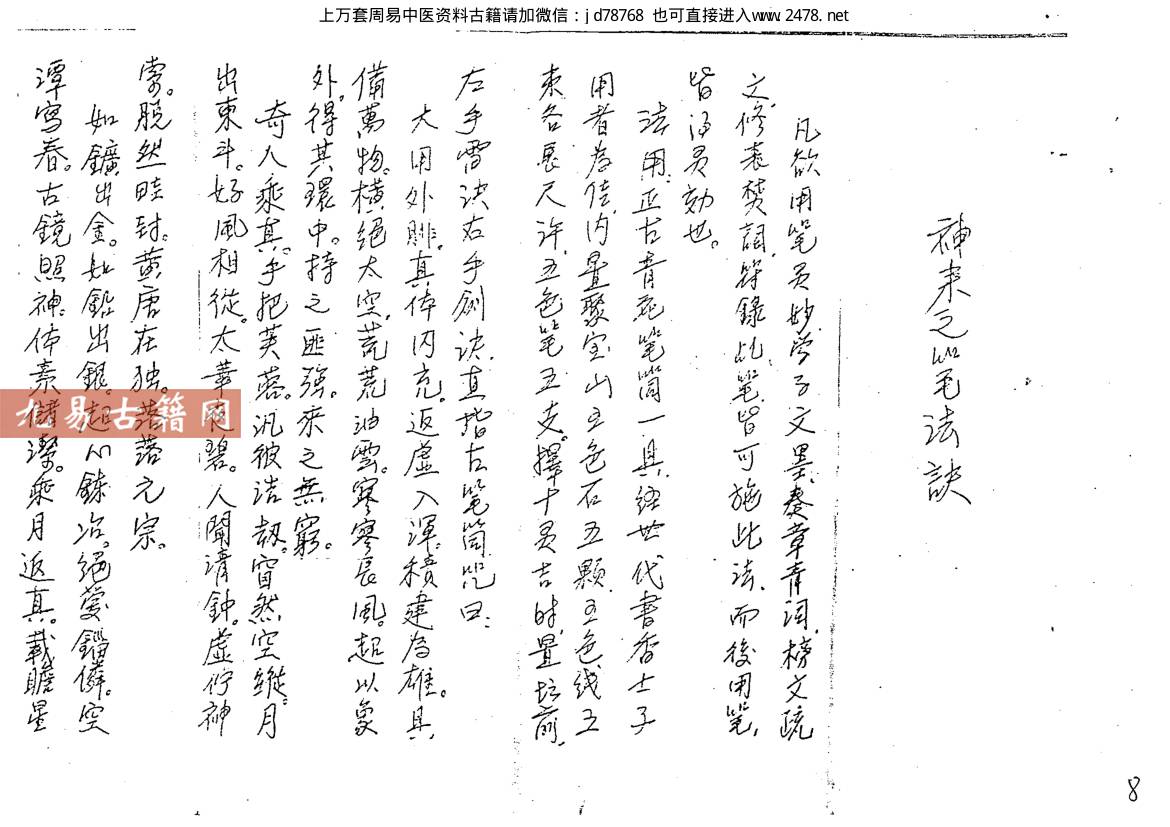 上万套周易中医资料古籍请加微信：jd78768 也可直接进入www.2478.net
神来之笔法訣
凡欲用笔灵妙学子文墨、奏章青词、榜文疏
文、修表焚詞、符錄此笔、皆可施此法、而後用笔、
皆得灵効也。
法用、正古青花笔筒一具、经世代書香士子
用者為佳、内置聚宝山五色石五顆、五色线五
束各長尺许、五色笔五支。擇十灵吉时、置坛前、
左手雷诀右手劍诀、直指古笔筒咒曰：
大用外腓。真体内充。返虚入渾。積建為雄。具
備萬物。橫绝太空。荒荒油雲。寥寥長風。超以象
外。得其環中。持之匪強。来之無窮。
奇人乘真。手把芙蓉。汎彼浩刼。窅然空縱。月
出東斗。好風相從。太華夜碧。人聞清鈡。虚佇神
素。脱然畦封。黄唐在独。落落元宗。
如鑛出金。如鉛出銀。超心鍊冶。绝愛錙憐。空
潭寫春。古鏡照神。体素儲潔。乘月返真。載瞻星
九易古籍网
8